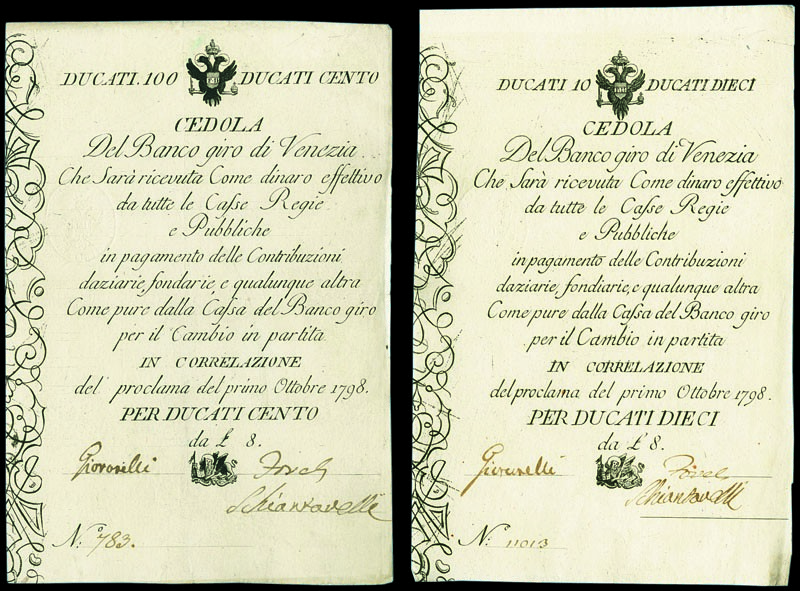 DUCATI. 100 DUCATI CENTO
CEDOLA
Del Banco giro di Venezia.
Che Sarà ricevuta Come dinaro effettivo
da tutte le Casse Regie
e Pubbliche
in pagamento delle Contribuzioni
daziarie, fondarie, e qualunque altra
Come pure dalla Cassa del Banco giro
per il Cambio in partita
IN CORRELAZIONE
del proclama del primo Ottobre 1798.
PER DUCATI CENTO
da £ 8.
Giovanelli
Schiantarelli
N.º 783.
DUCATI 10 DUCATI DIECI
CEDOLA
Del Banco giro di Venezia
Che Sarà ricevuta Come dinaro effettivo
da tutte le Casse Regie
e Pubbliche
in pagamento delle Contribuzioni
daziarie, fondiarie, e qualunque altra
Come pure dalla Cassa del Banco giro
per il Cambio in partita
IN CORRELAZIONE
del proclama del primo Ottobre 1798.
PER DUCATI DIECI
da £ 8.
Giovanelli
N.º 11013